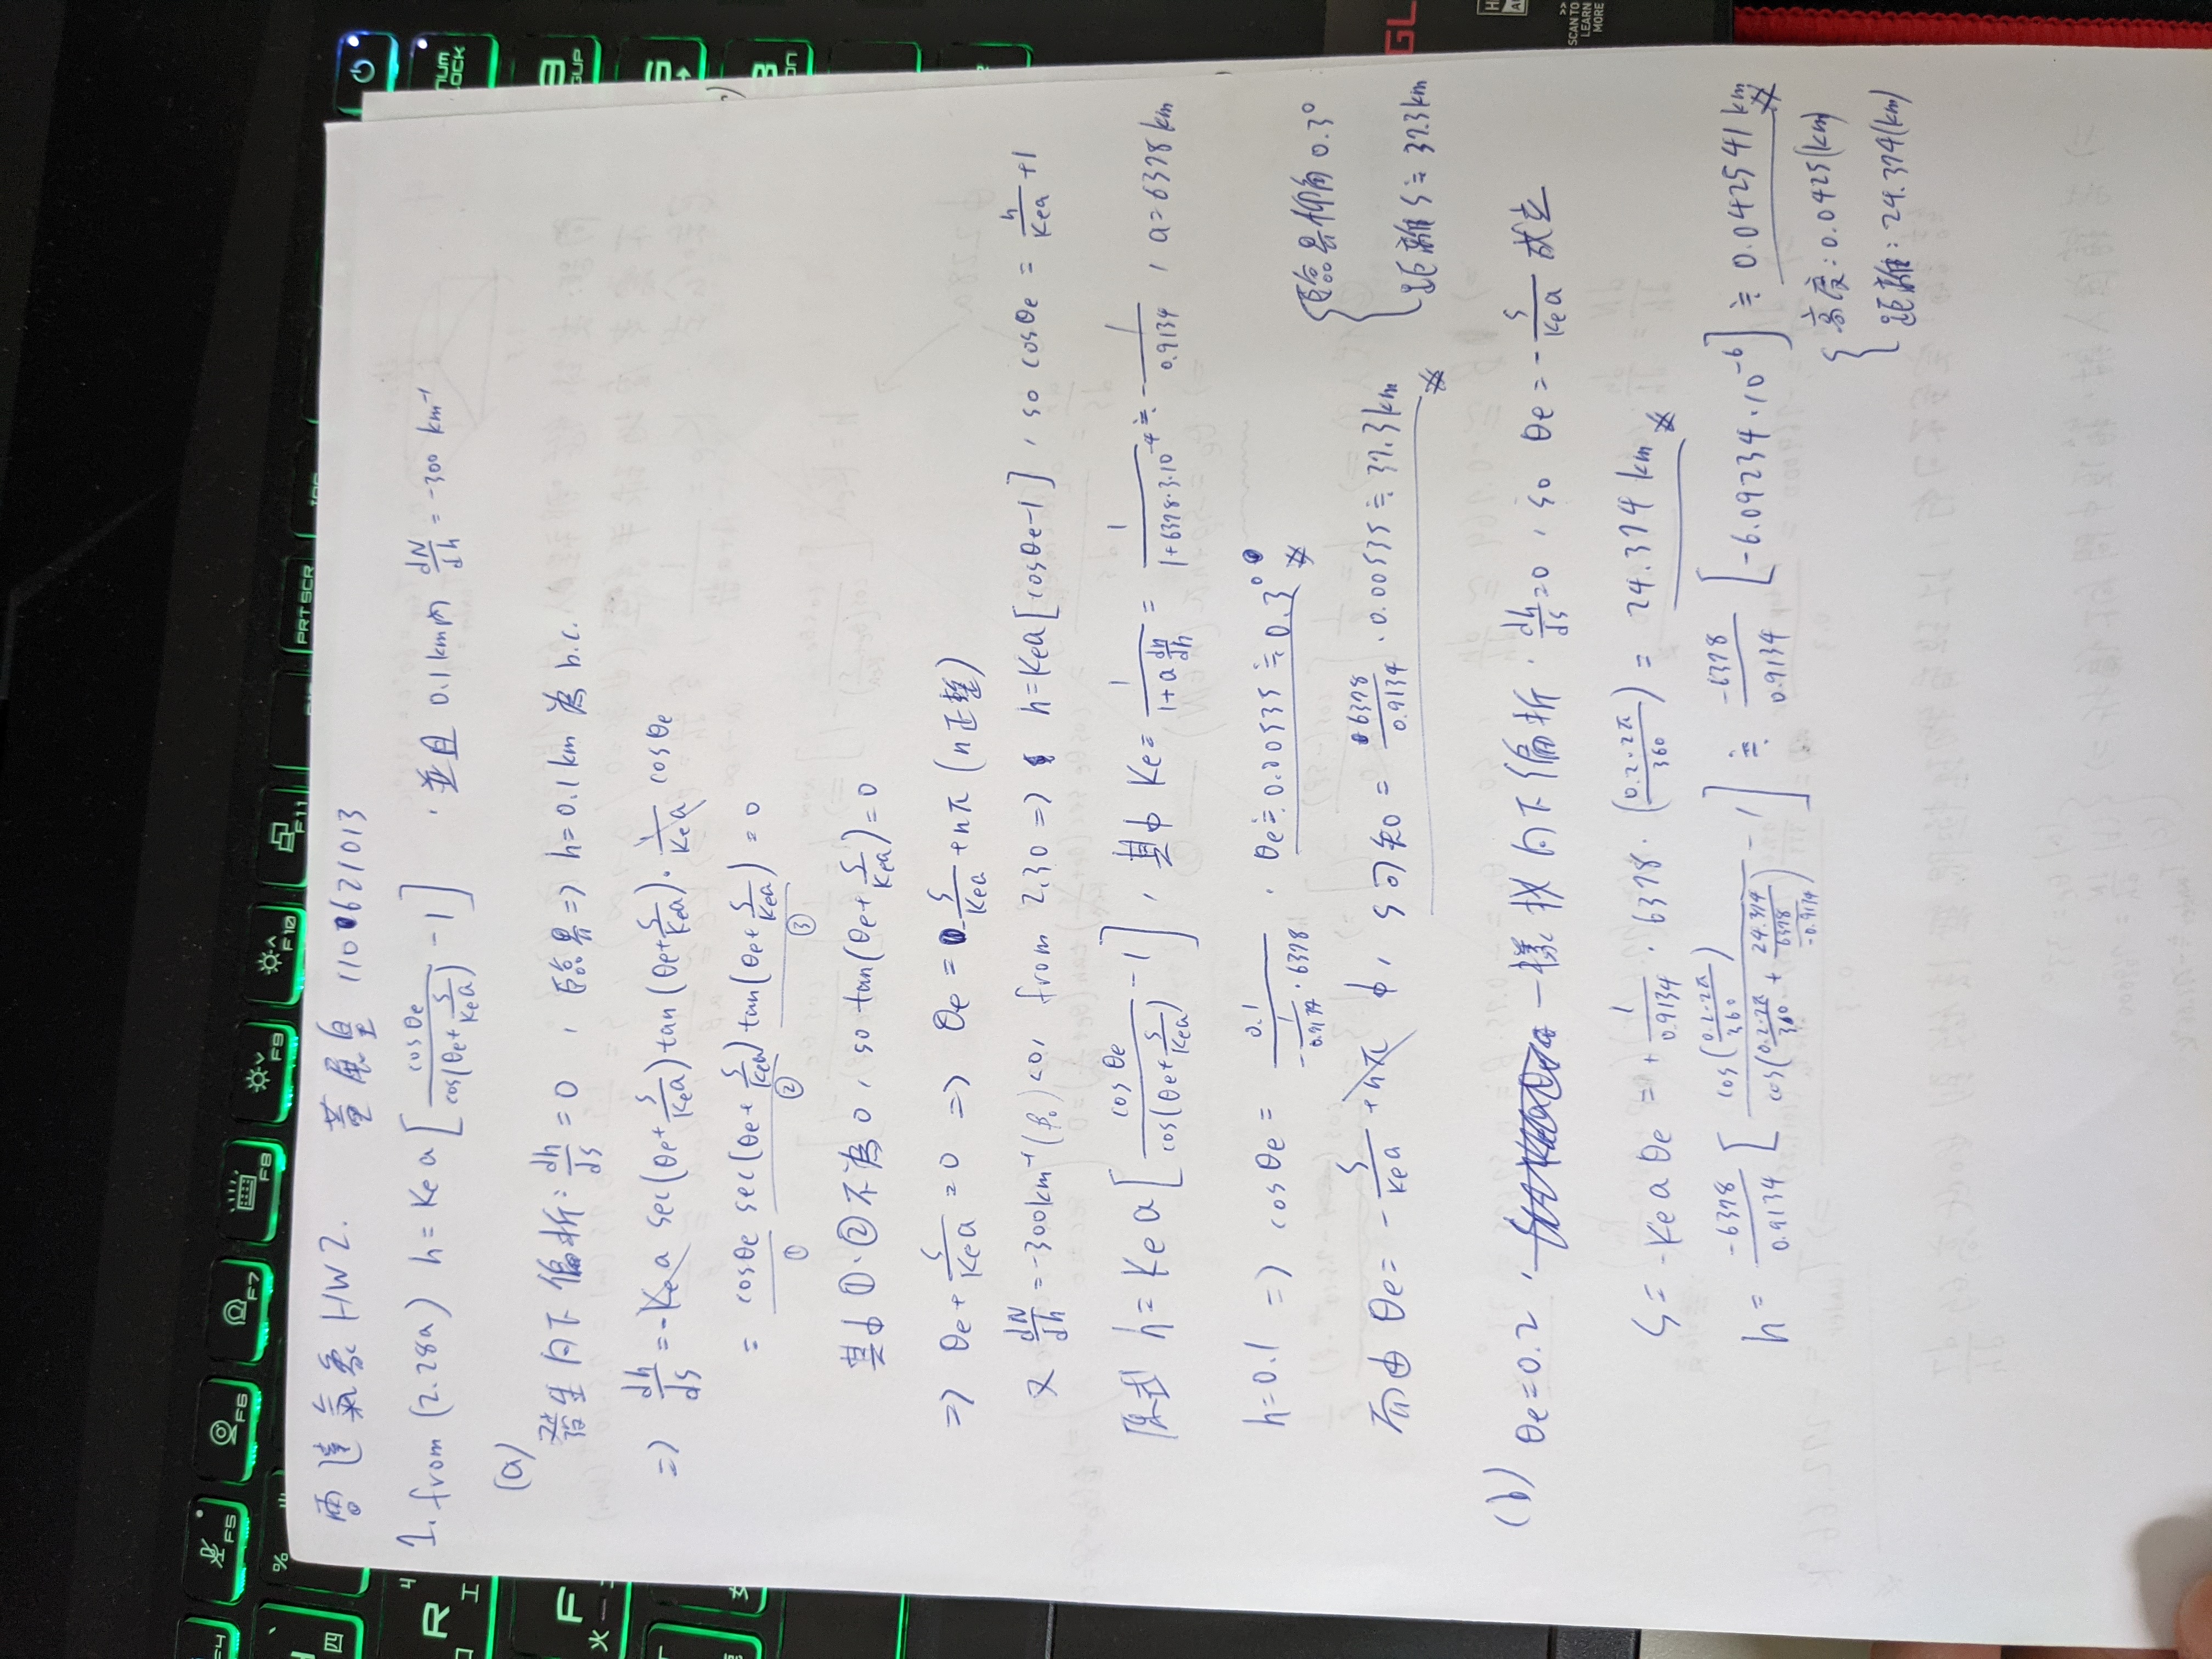 F4
F5
F6
F7
F8
F9
F10
F11
PRT SCR
%
四
4
R
工
F
火
NUM
LOCK
雷達氣象 HW2. 董展皇 110621013
1. from (2.28a) h = Ke a [ cosθe / cos(θe + s/Kea) - 1 ] , 並且 0.1km內 dN/dh = -300 km⁻¹
(a)
發生向下偏折: dh/ds = 0 , 臨界 => h=0.1km 為 b.c.
=> dh/ds = -Kea sec(θe + s/Kea) tan(θe + s/Kea) · 1/Kea cosθe
= cosθe sec(θe + s/Kea) tan(θe + s/Kea) = 0
① ② ③
其中 ①、② 不為 0 , so tan(θe + s/Kea) = 0
=> θe + s/Kea = 0 => θe = - s/Kea + nπ (n正整)
又 dN/dh = -300km⁻¹ (β₀) <0, from 2.30 => h = Kea [cosθe - 1] , so cosθe = h/Kea + 1
原式 h = Ke a [ cosθe / cos(θe + s/Kea) - 1 ] , 其中 Ke = 1/(1 + a dn/dh) = 1/(1+6378·3·10⁻⁴) ≒ - 1/0.9134 , a = 6378 km
h=0.1 => cosθe = 0.1 / (- 1/0.9134 · 6378) , θe ≒ 0.00535 ≒ 0.3°
臨界仰角 0.3°
而由 θe = - s/Kea + nπ 中, s可知 = 6378/0.9134 · 0.00535 ≒ 37.3km
距離 s ≒ 37.3km
(b) θe = 0.2 , 一樣找向下偏折 . dh/ds = 0 , so θe = - s/Kea 成立
s = -Ke a θe = + 1/0.9134 · 6378 · (0.2·2π/360) = 24.374 km
h = -6378/0.9134 [ cos(0.2·2π/360) / cos(0.2·2π/360 + 24.374/(6378/-0.9134)) - 1 ] ≒ -6378/0.9134 [-6.09234·10⁻⁶] ≒ 0.042541 km
高度: 0.0425(km)
距離: 24.374(km)
SCAN TO
LEARN
MORE